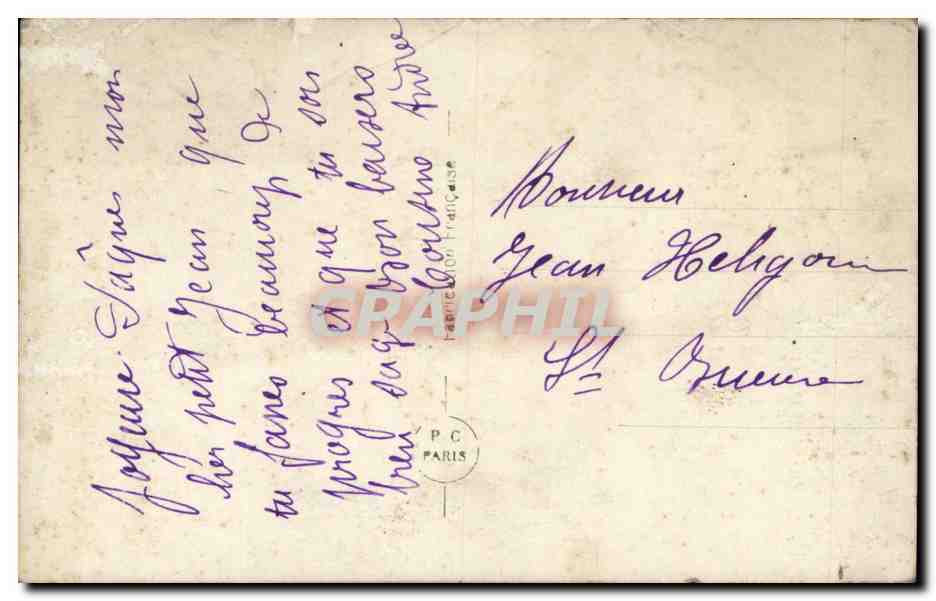 Joyeuse Pâques mon
petit Jean que
tu fasses beaucoup de
progres et que tu sois
bien sage Bon baisers
cousine Andrée
Fabrication Française
P C
PARIS
Monsieur
Jean Heligoin
St Brieuc
CARTAPHIL